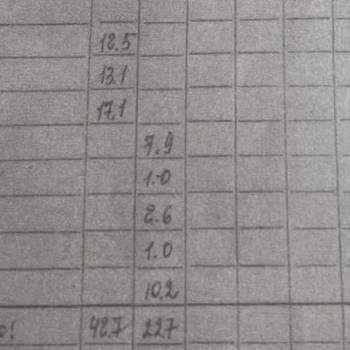 18.5
13.1
17.1
7.9
1.0
2.6
1.0
10.2
о! 48.7 22.7